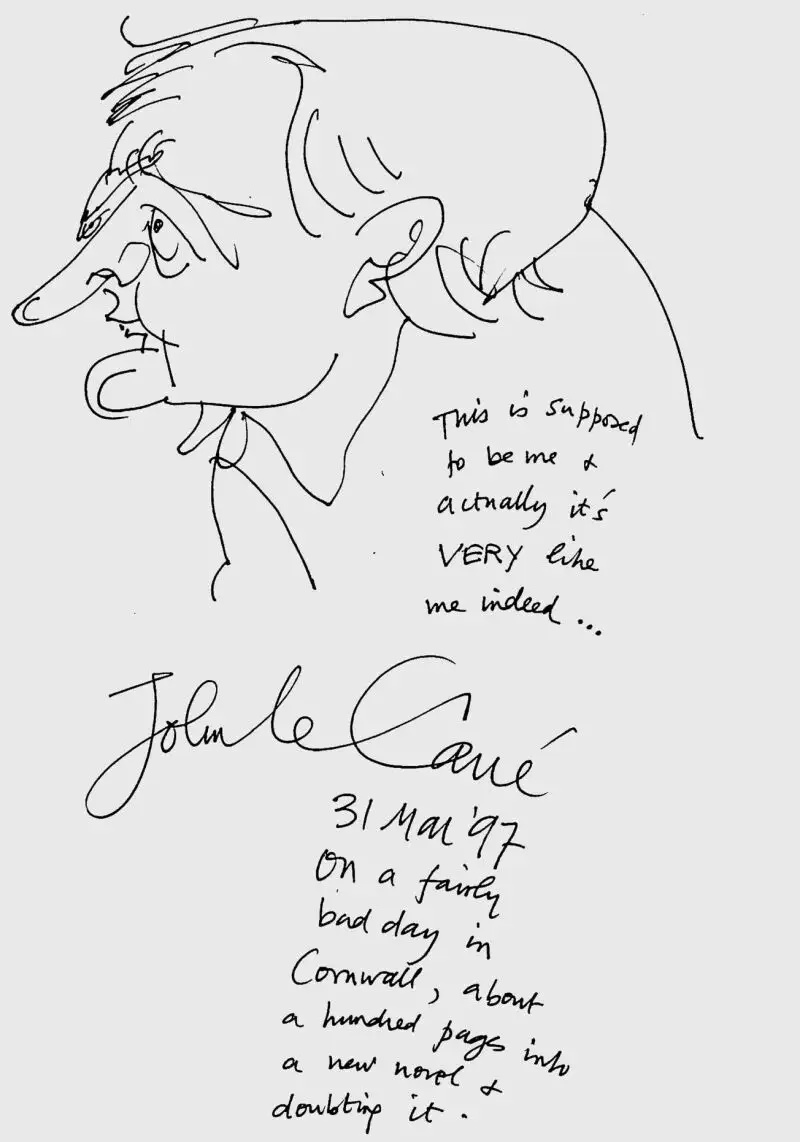 This is supposed
to be me &
actually it's
VERY like
me indeed ...
John le Carré
31 Mar '97
On a fairly
bad day in
Cornwall, about
a hundred pages into
a new novel &
doubting it.